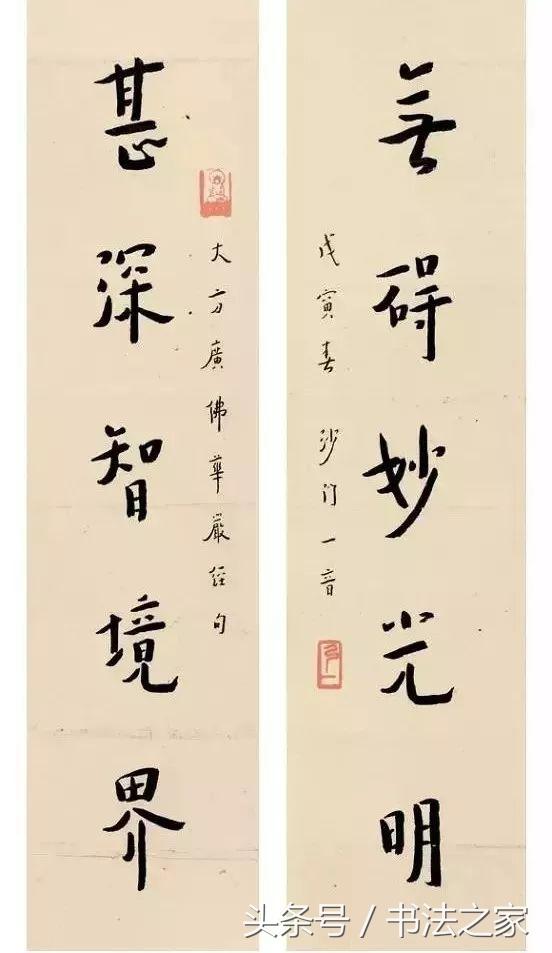 無碍妙光明
戊寅春 沙門一音
大方廣佛華嚴經句
甚深智境界
头条号 / 书法之家